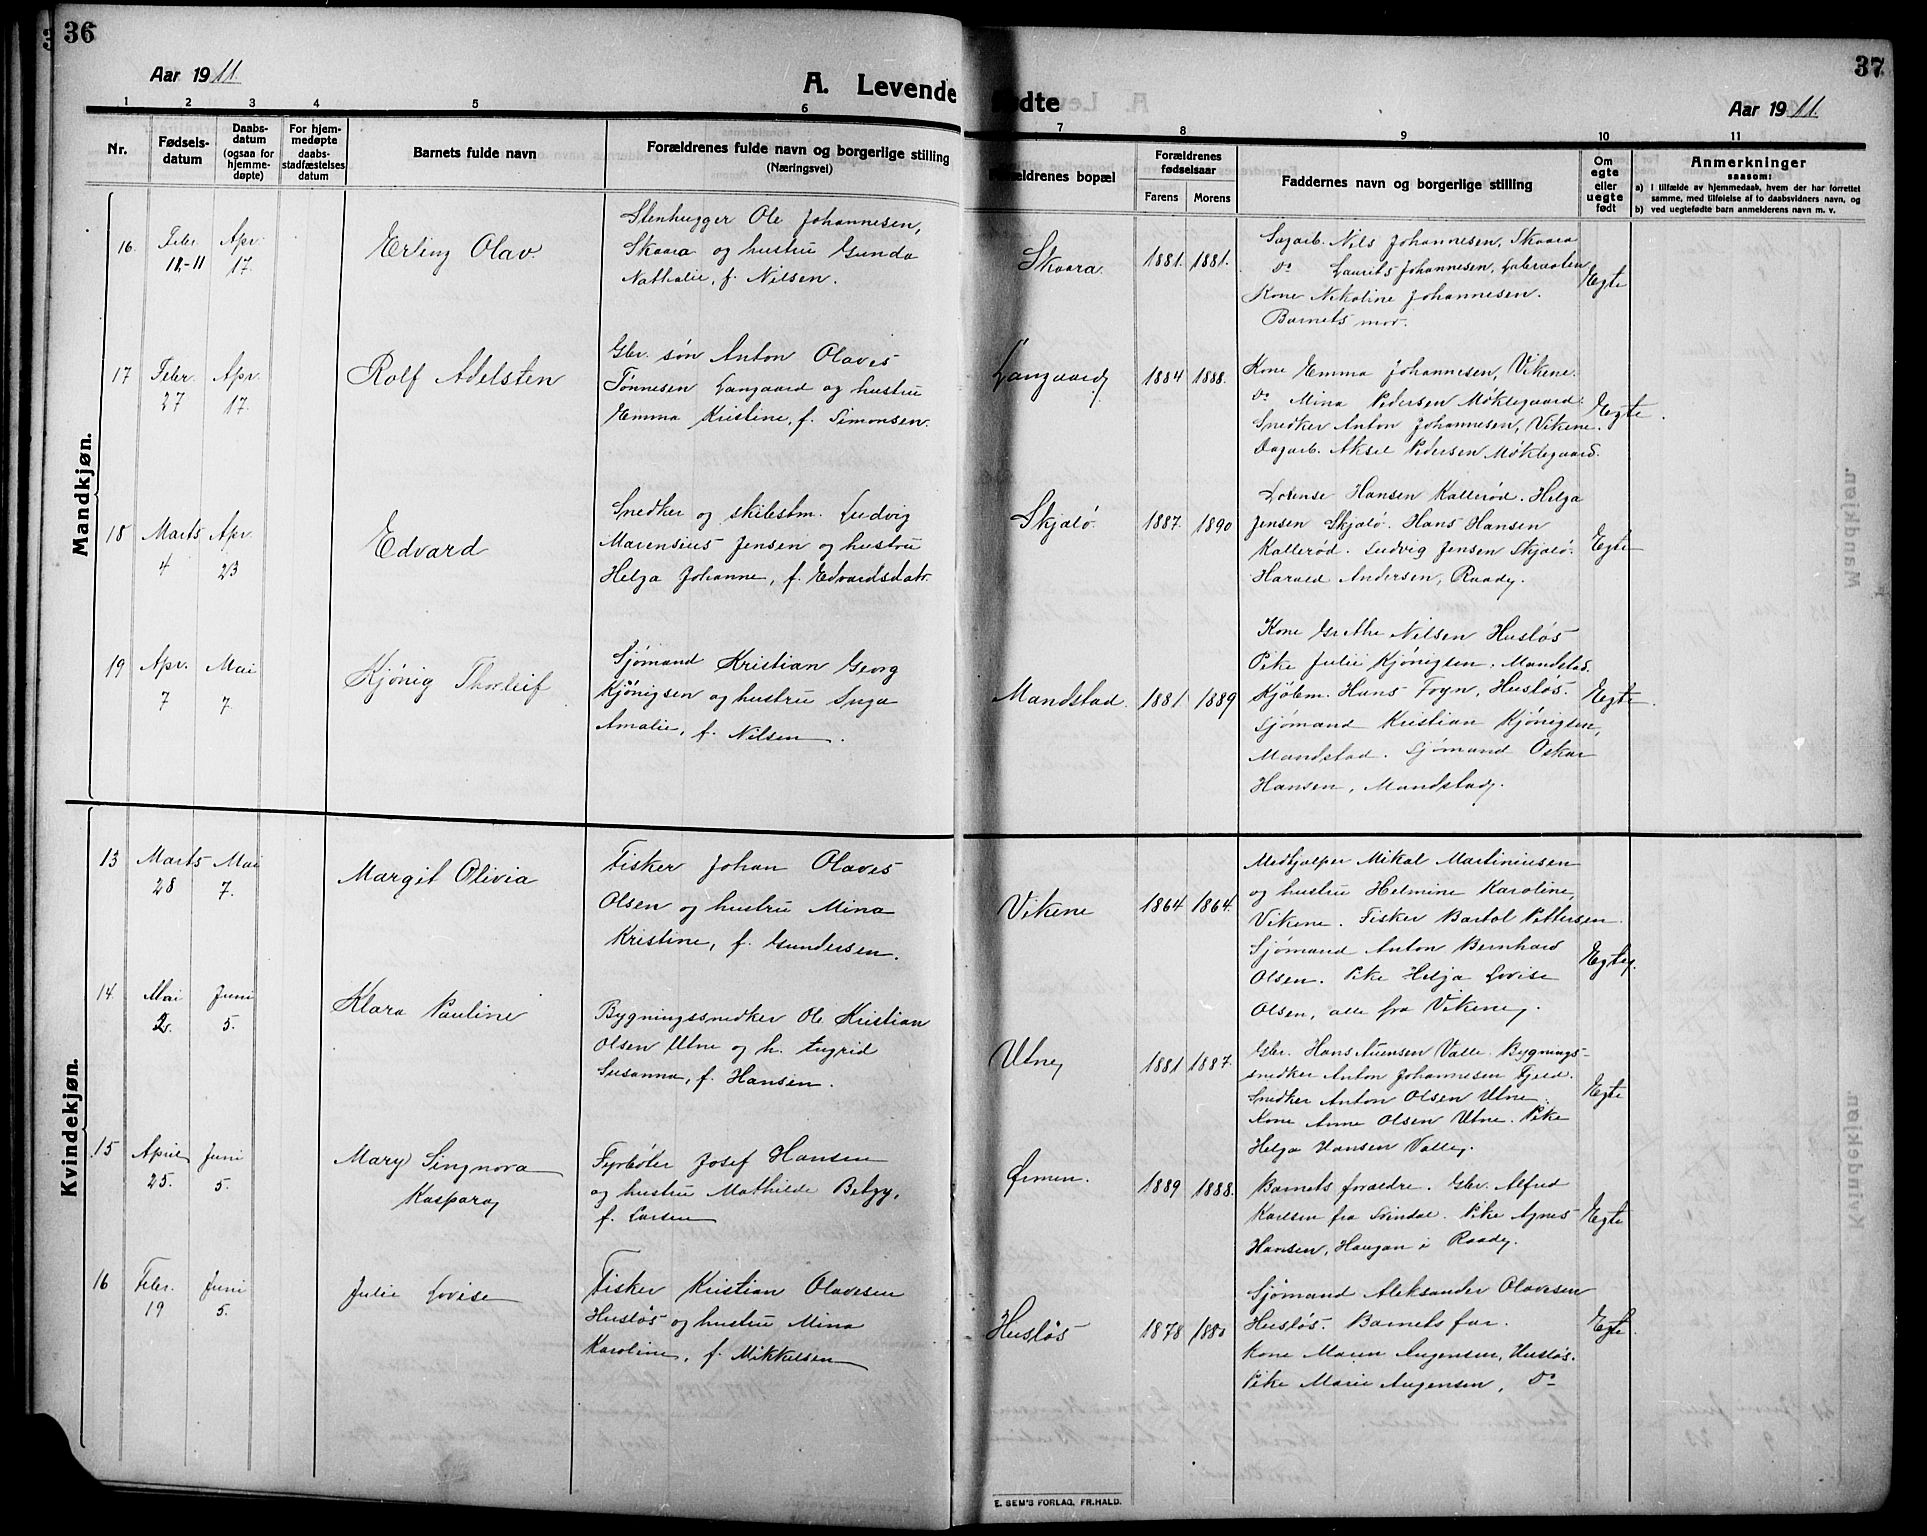 36
Aar 1911.
A. Levende
1 2 3 4 5 6
Nr.
Fødsels-
datum
Daabs-
datum
(ogsaa for
hjemme-
døpte)
For hjem-
medøpte
daabs-
stadfæstelses
datum
Barnets fulde navn
Forældrenes fulde navn og borgerlige stilling
(Næringsvei)
Mandkjøn.
16.
Febr.
11.-11
Apr.
17.
Erling Olav.
Stenhugger Ole Johannesen,
Skaara og hustru Gunda
Nathalie, f. Nilsen.
17
Febr.
27
Apr.
17.
Rolf Adelsten
Gbr. søn Anton Olaves
Tønnesen Langaard og hustru
Emma Kristine, f. Simonsen.
18
Marts
4
Apr.
23
Edvard
Snedker og skibstm. Ludvig
Marensius Jensen og hustru
Helga Johanne, f. Edvardsdatr.
19
Apr.
7
Mai
7.
Kjønig Thorleif
Sjømand Kristian Georg
Kjønigsen og hustru Inga
Amalie, f. Nilsen.
Kvindekjøn.
13
Marts
28
Mai
7.
Margit Olivia
Fisker Johan Olaves
Olsen og hustru Mina
Kristine, f. Gundersen.
14.
Mai
2.
Juni
5.
Klara Pauline
Bygningssnedker Ole Kristian
Olsen Utne og h. Ingrid
Susanna, f. Hansen.
15
April
25.
Juni
5.
Mary Singnora
Kaspara
Fyrbøter Josef Hansen
og hustru Mathilde Betzy,
f. Larsen
16
Febr.
19
Juni
5.
Julie Lovise
Fisker Kristian Olavesen
Husløs og hustru Mina
Karoline, f. Mikkelsen
37
fødte
Aar 1911.
7 8 9 10 11
Forældrenes bopæl
Forældrenes
fødselsaar
Farens Morens
Faddernes navn og borgerlige stilling
Om
egte
eller
uegte
født
Anmerkninger
saasom:
a) I tilfælde av hjemmedaab, hvem der har forrettet
samme, med tilføielse af to daabsvidners navn, og
b) ved uegtefødte barn anmelderens navn m. v.
Skaara
1881. 1881.
Dagarb. Nils Johannesen, Skaara
Do Laurits Johannesen,
Kone Nikoline Johannesen.
Barnets mor.
Egte
Langaard
1884 1888.
Kone Emma Johannesen, Vikene.
Do Mina Pedersen Møklegaard.
Snedker Anton Johannesen, Vikene.
Dagarb. Aksel Pedersen Møklegaard.
Egte.
Skjalø.
1887. 1890
Lovense Hansen Kallerød. Helga
Jensen Skjalø. Hans Hansen
Kallerød. Ludvig Jensen Skjalø.
Harald Andersen, Raade.
Egte
Mandstad.
1881 1889
Kone Grethe Nilsen Husløs
Pike Julie Kjønigsen, Mandstad.
Kjøbm. Hans Foyn, Husløs.
Sjømand Kristian Kjønigsen,
Mandstad. Sjømand Oskar
Hansen, Mandstad.
Egte.
Vikene
1864 1864.
Medhjælper Mikal Martiniusen
og hustru Helmine Karoline,
Vikene. Fisker Bartol Pettersen
Sjømand Anton Bernhard
Olsen. Pike Helga Lovise
Olsen, alle fra Vikene.
Egte.
Utne
1881 1887.
Gbr. Hans Auensen Valle. Bygnings-
snedker Anton Johannesen Fjeld.
Snedker Anton Olsen Utne.
Kone Anne Olsen Utne. Pike
Helga Hansen Valle.
Egte
Ørmen.
1889 1888.
Barnets forældre. Gbr. Alfred
Karlsen fra Svindal. Pike Agnes
Hansen, Haugan i Raade.
Egte
Husløs
1878 1880
Sjømand Aleksander Olavesen
Husløs. Barnets far.
Kone Maren Augensen, Husløs.
Pike Marie Augensen, Do
Egte.
E. SEM'S FORLAG, FR.HALD.